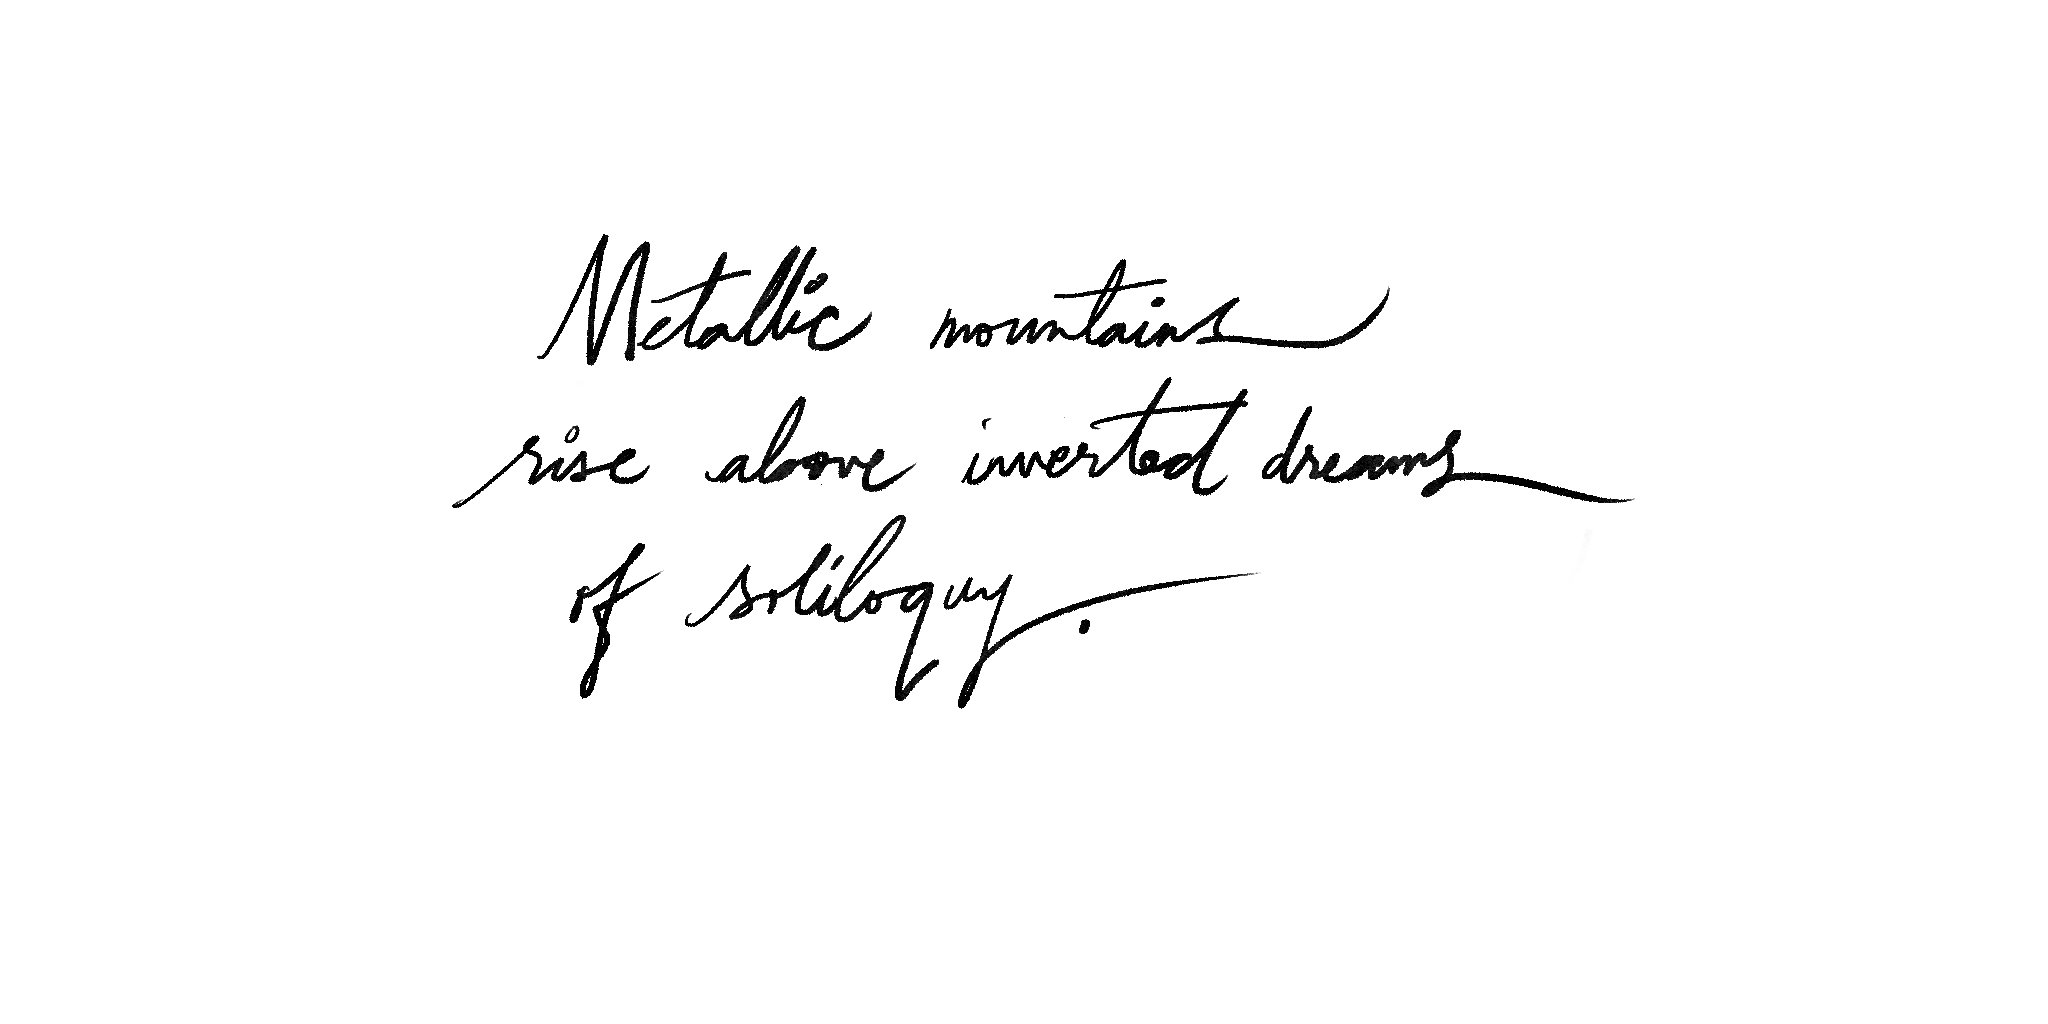 Metallic mountains
rise above inverted dreams
of soliloquy.